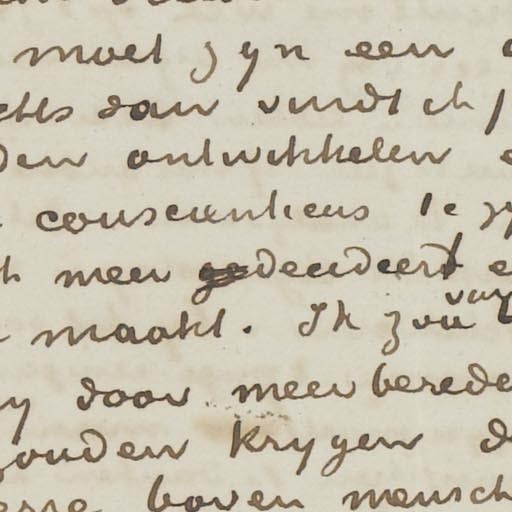 moet zyn een
dan vindt ik
den ontwikkelen
consciëntieus te
meer gedecideerd
maakt. Ik zou van
door meer berede
zouden krygen d
boven mensch